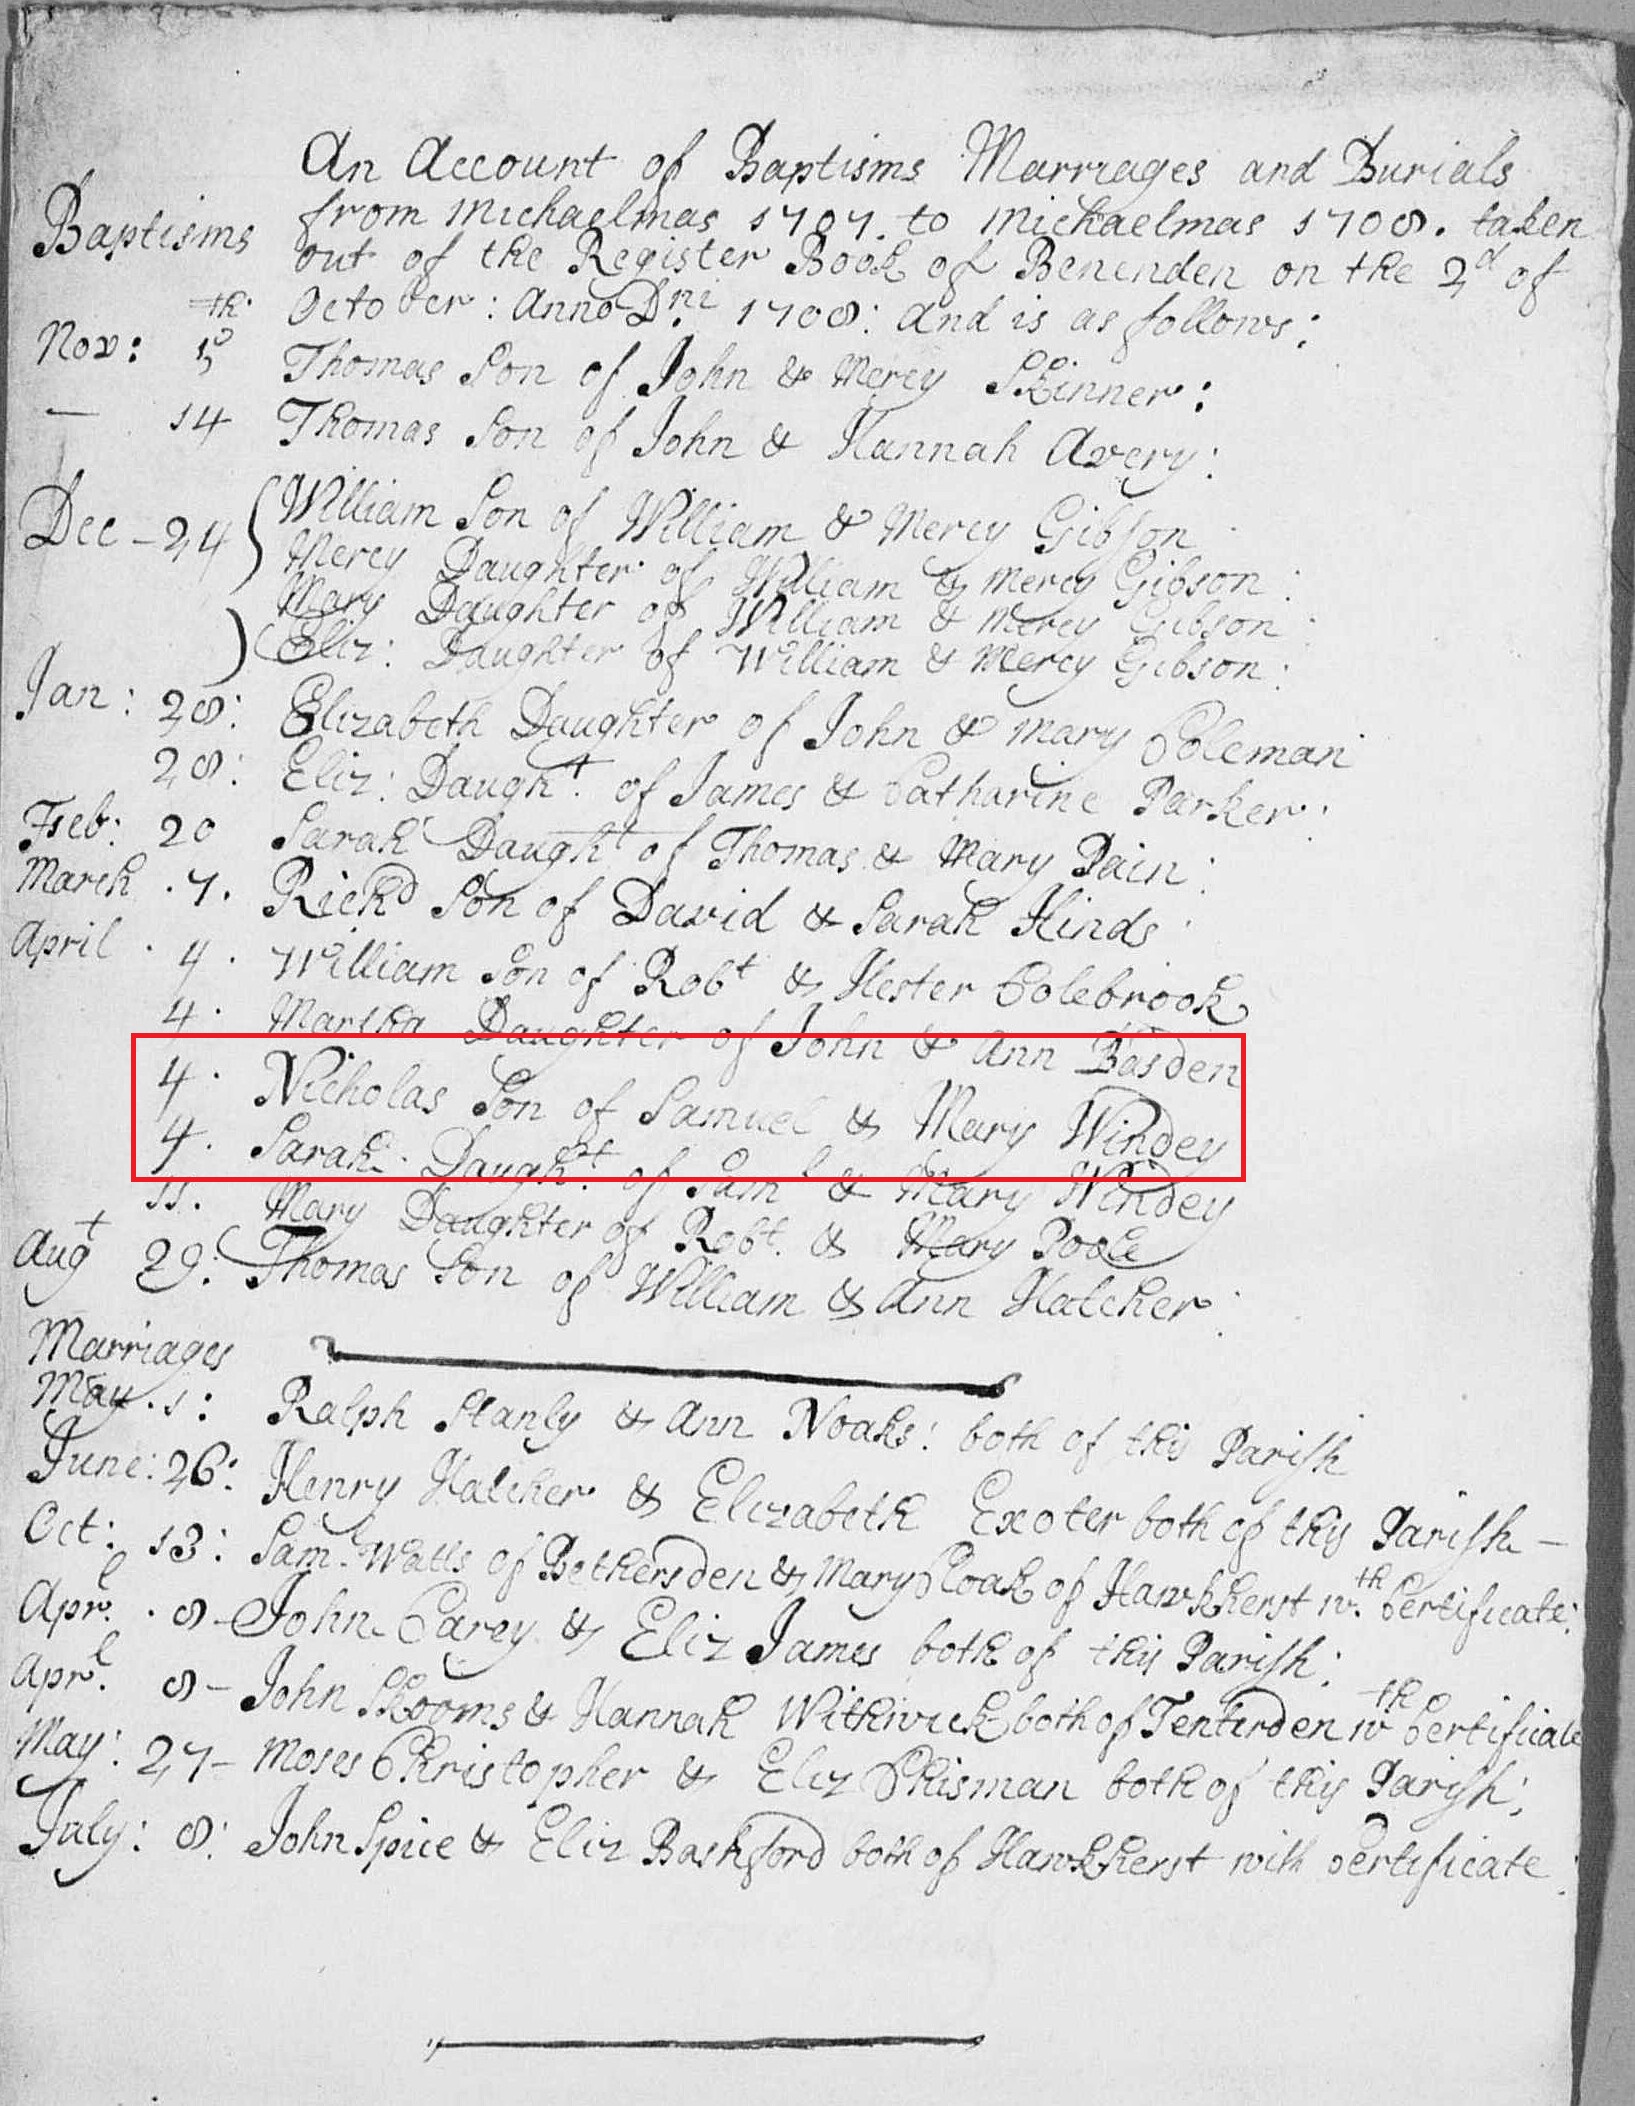 An Account of Baptisms Marriages and Burials
Baptisms from Michaelmas 1707. to Michaelmas 1708. taken
out of the Register Book of Benenden on the 2d of
October: Anno Dni 1708: and is as follows:
Nov: 5th Thomas Son of John & Mercy Skinner:
— 14 Thomas Son of John & Hannah Avery:
Dec - 24 William Son of William & Mercy Gibson
Mercy Daughter of William & Mercy Gibson:
Mary Daughter of William & Mercy Gibson:
Eliz: Daughter of William & Mercy Gibson:
Jan: 28: Elizabeth Daughter of John & Mary Coleman
28: Eliz: Daught. of James & Catharine Parker:
Feb: 20 Sarah Daught of Thomas & Mary Pain:
March . 7. Richd Son of David & Sarah Hinds
April . 4. William Son of Robt & Hester Colebrook
4. Martha Daughter of John & Ann Basden
4. Nicholas Son of Samuel & Mary Windey
4. Sarah Daught. of Saml & Mary Windey
11. Mary Daughter of Robt. & Mary Poole
Augt 29: Thomas Son of William & Ann Hatcher:
Marriages
May . 1: Ralph Stanly & Ann Noaks: both of this Parish
June: 26: Henry Hatcher & Elizabeth Exoter both of this Parish -
Oct: 13: Sam. Watts of Bethersden & Mary Cloak of Hawkherst wth. Certificate:
Aprl. . 8 - John Carey & Eliz James both of this Parish:
Aprl. 8 - John Shooms & Hannah Withwick both of Tenterden wth Certificate
May: 27 - Moses Christopher & Eliz Chisman both of this Parish:
July: 8: John Spice & Eliz Bashford both of Hawkherst with Certificate: